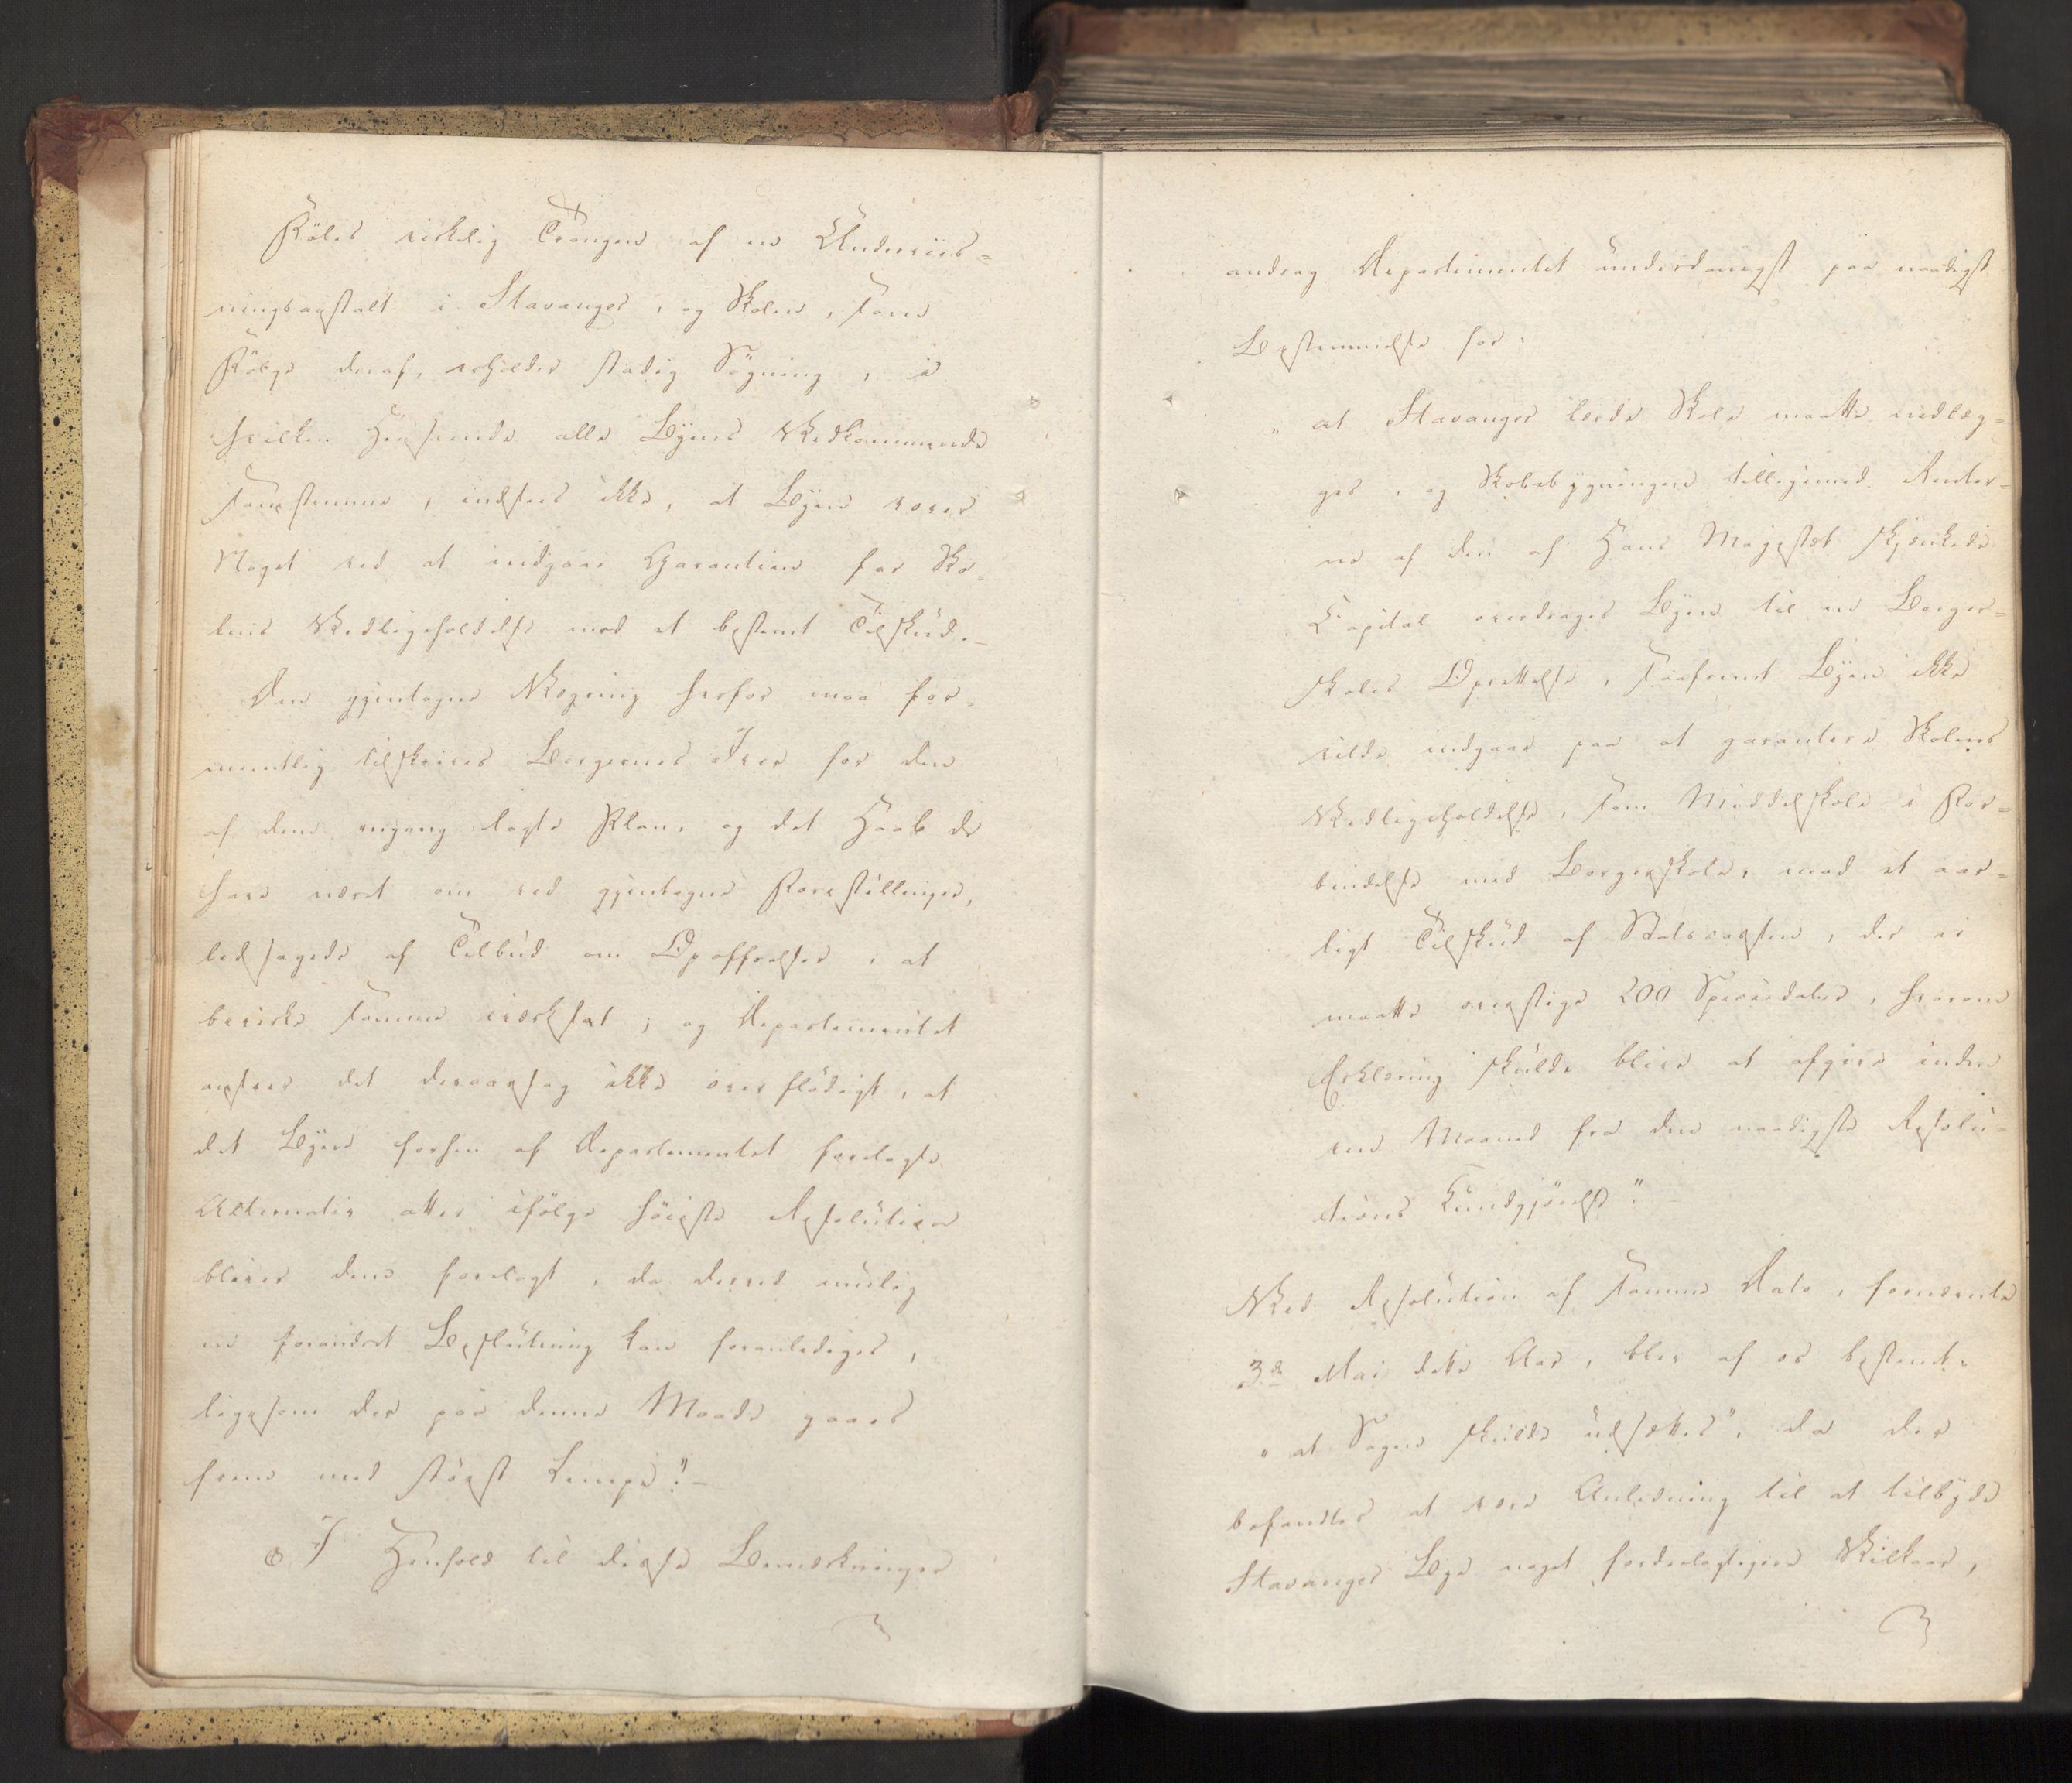 Föles virkelig Trangen af en Underviis=
ningsanstalt i Stavanger, og Skolen, som
Fölge deraf, erholder stadig Sögning, i
hvilken Henseende alle Byens Vedkommende
samstemme, indsees ikke, at Byen vover
Noget ved at indgaae Garantien for Sko=
lens Vedligeholdelse mod et bestemt Tilskud.—
Den gjentagne Vægring herfor maa for=
mentlig tilskrives Borgernes Iver for den
af dem engang lagte Plan, og det Haab de
have næret om ved gjentagne Forestillinger,
ledsagede af Tilbud om Opoffrelser, at
bevirke samme iværksat; og Departementet
anseer det desaarsag ikke overflödigt, at
det Byen forhen af Departementet forelagte
Alternativ atter ifölge höieste Resolution
bliver dem forelagt, da derved muelig
en forandret Beslutning kan foranlediges,
ligesom der paa denne Maade gaaes
frem med störst Lempe".—
I Henhold til disse Bemærkninger
androg Departementet underdanigst paa naadigst
Bestemmelse for:
„at Stavanger lærde Skole maatte nedlæg=
ges, og Skolebygningen tilligemed Renter=
ne af den af Hans Majestæt skjænkede
Capital overdrages Byen til en Borger=
skoles Oprettelse, saafremt Byen ikke
vilde indgaae paa at garantere Skolens
Vedligeholdelse, som Middelskole i For=
bindelse med Borgerskole, mod et aar=
ligt Tilskud af Statscassen, der ei
maatte overstige 200 Speciedaler, hvorom
Erklæring skulde blive at afgive inden
een Maaned fra den naadigste Resolu=
tions Kundgjörelse".
Ved Resolution af samme Dato, fornævnte
3de Mai dette Aar, blev af os bestemt:
„at Sagen skulde udsættes", da der
befandtes at være Anledning til at tilbyde
Stavanger Bye noget fordeelagtigere Vilkaar,